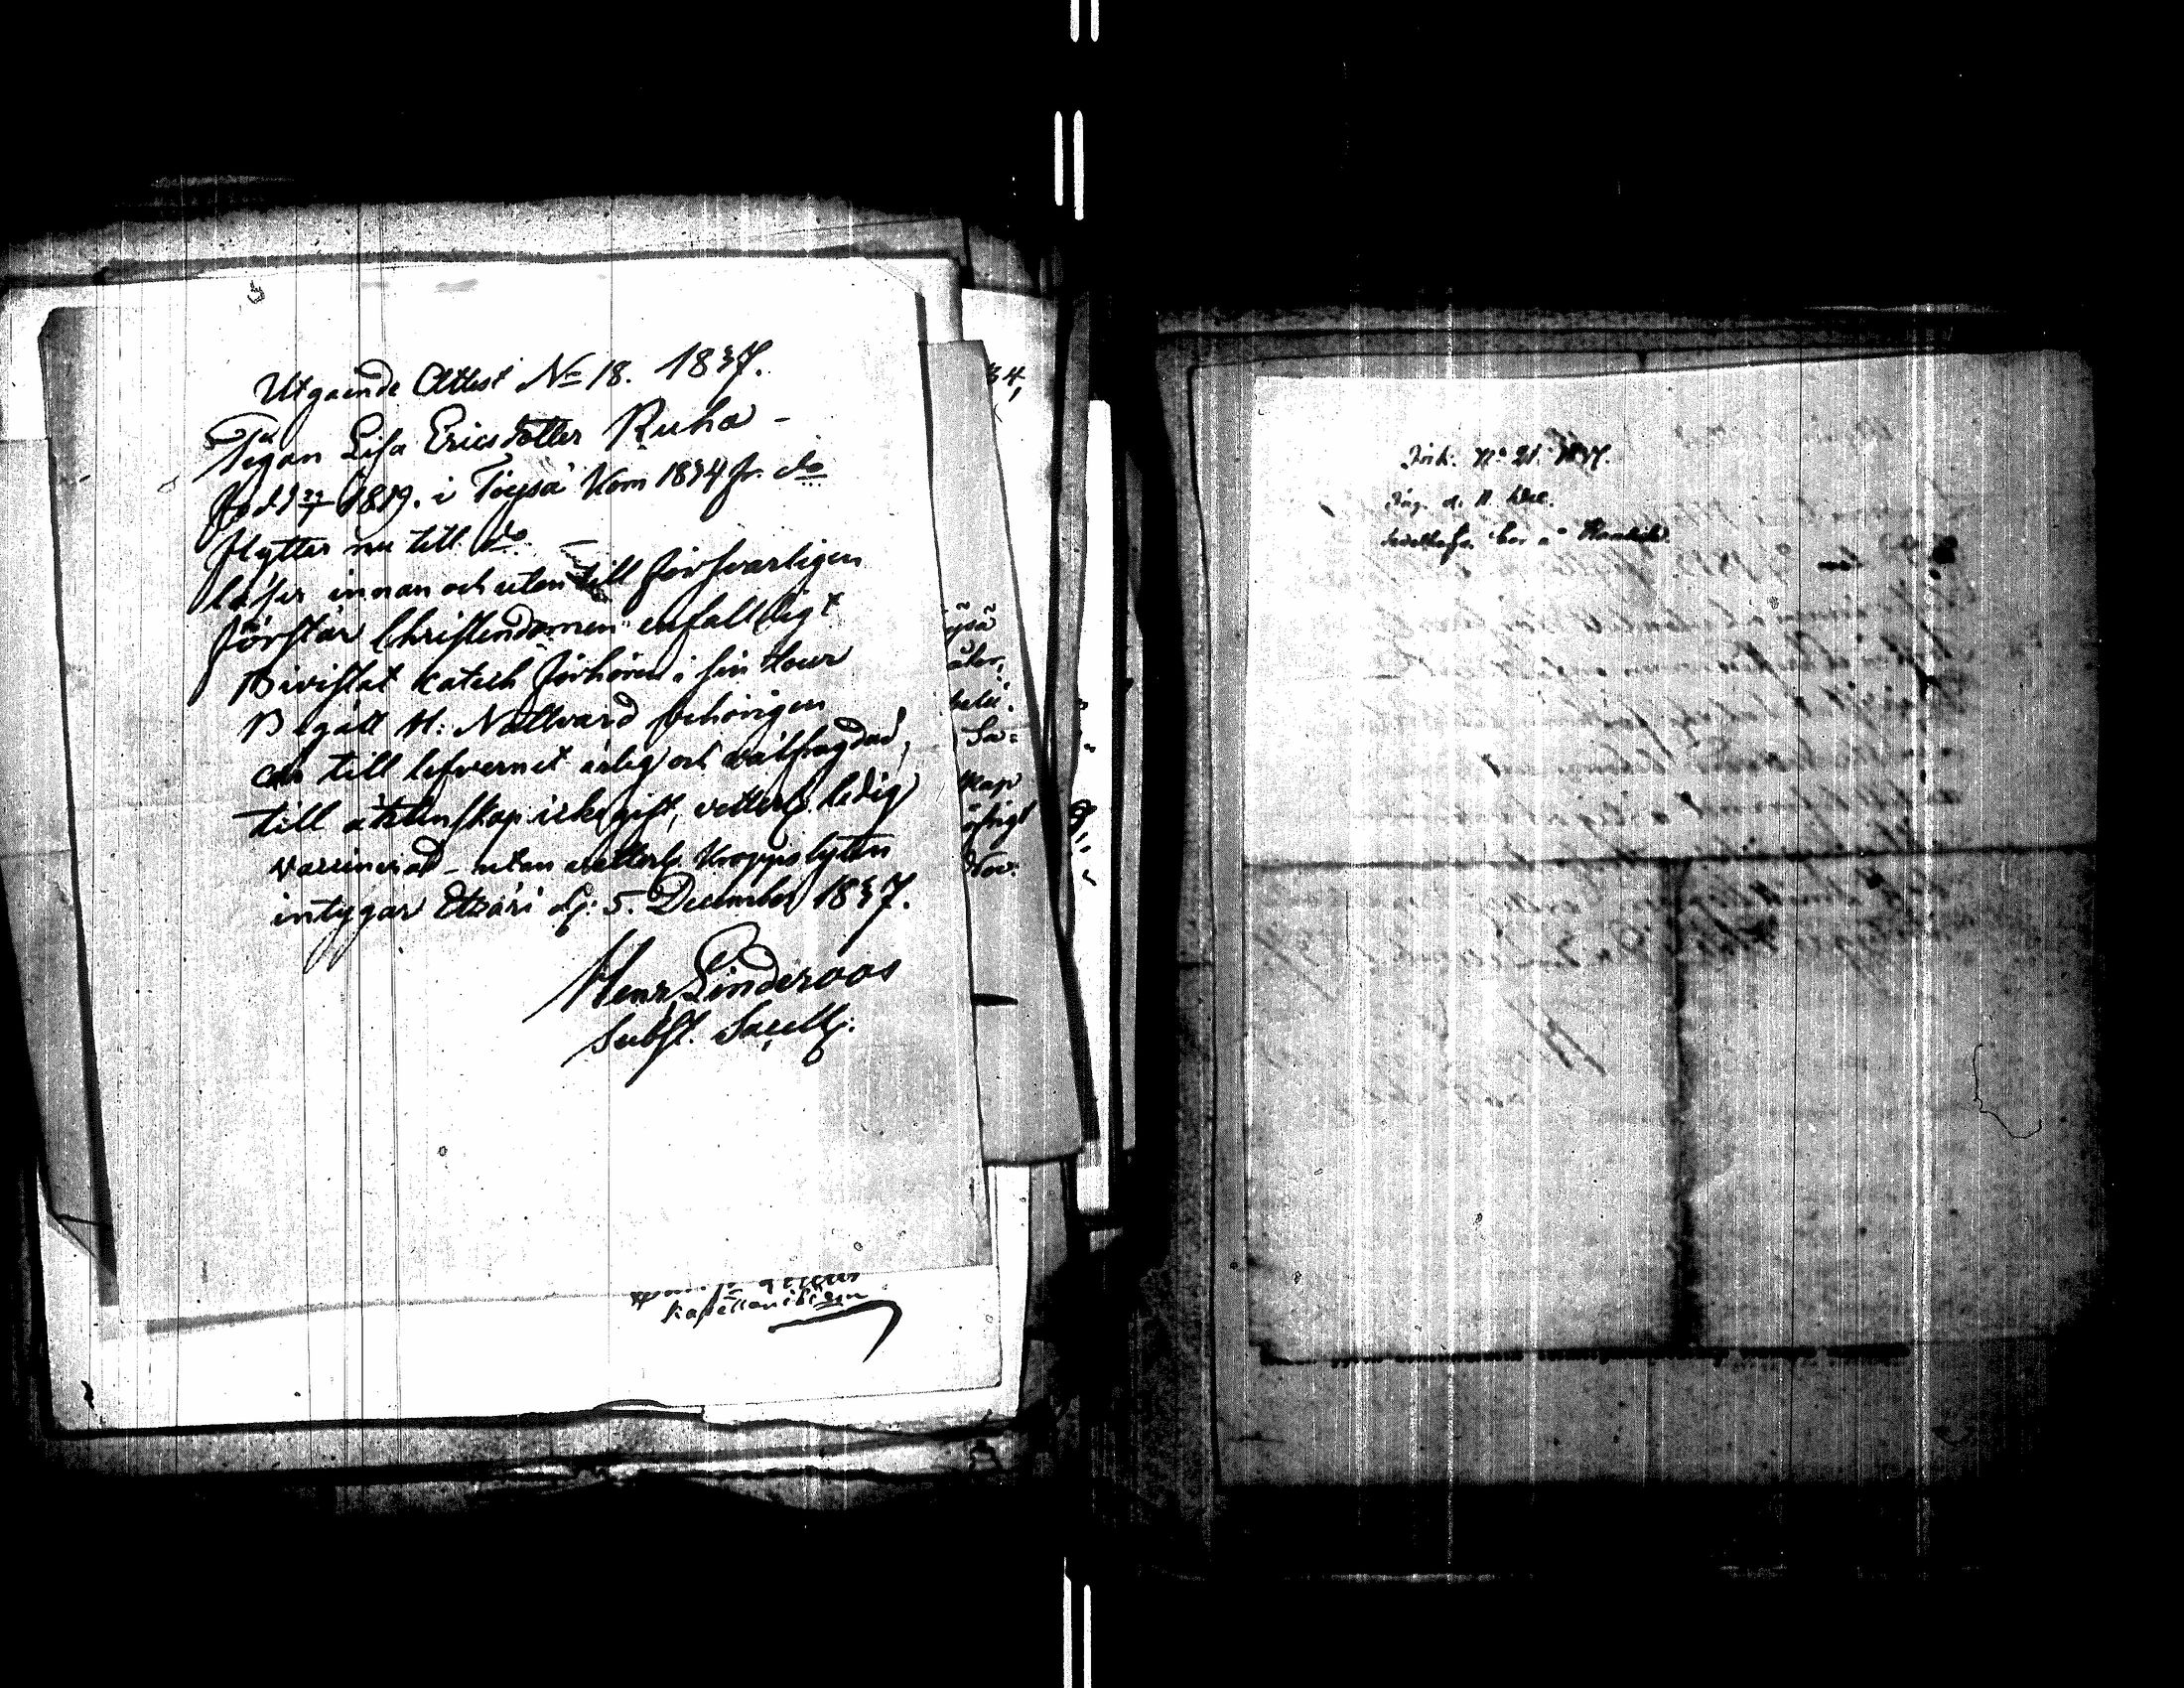 Utgaende Attest No 18. 1837.
Pigan Lisa Ericsdotter Ruha -
född 27/7 1819. i Töysä kom 1834 fr. do
flytter nu till do -
läser innan och utan till försvarligen
förstår Christendomen enfalldigt
Bivistat katech förhören i sin tour
Begått H: Nattvard behörigen
är till lefvernet ärlig och välfragdad,
till äktenskap icke gift, vetterl. ledig
vaccinerad - utan vetterl. kroppslyten
intygar Etzäri d: 5. December 1837.
Henr Linderoos
Subst. Sacell:
34,
ysä
Sa=
skap
Nov.
Kapellansible
Ink. No 21. 1837.
Ing. d. 11 Dec.